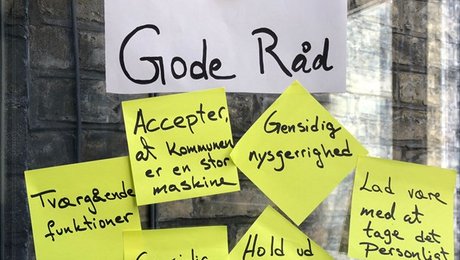 Gode Råd
Accepter,
at kommunen
er en stor
maskine
Gensidig
nysgerrighed
Tværgående
funktioner
Lad være
med at
tage det
Personligt
Gensidig
Hold ud